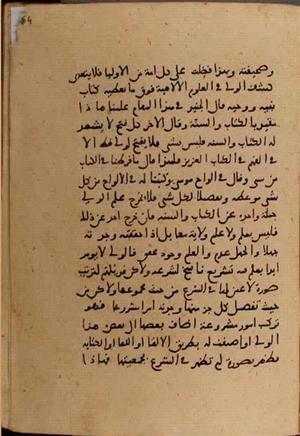 64
وصحيفته وبهذا فضلت على كل امة من الاوليا فلا يتعدى
كشف الولي في العلوم الالاهية فوق ما يعطيه كتاب
نبيه ووحيه قال الجنيد في هذا المقام علمنا هذا
مقيد بالكتاب والسنة وقال الاخر كل فتح لا يشهد
له الكتاب والسنه فليس بشي فلا يفتح لولي قط الا
في الفهم في الكتاب العزيز فلهذا قال ما فرطنا في الكتاب
من شي وقال في الواح موسى وكتبنا له في الالواح من كل
شي موعظه وتفصيلا لكل شي فلا يخرج علم الولي
جملة واحده عن الكتاب والسنه فان خرج احد عن ذلك
فليس بعلم ولا علم ولاية معا بل اذا حققته وجدته
جهلا والجهل عدم والعلم وجود محقق فالولي لا يومر
ابدا بعلم فيه تشريع ناسخ لشرعه ولكن قد يلهم لترتيب
صورة لا عين لها في الشرع من حيث مجموعها ولكن من
حيث تفصيل كل جز منها وجدته امرا مشروعا فهو
تركيب امور مشروعة اضاف بعضها الى بعض هذا
الولي او اضيفت له بطريق الالقا او اللقا او الكتابه
فظهر بصورة لم تظهر في الشرع بجمعيتها فهذا